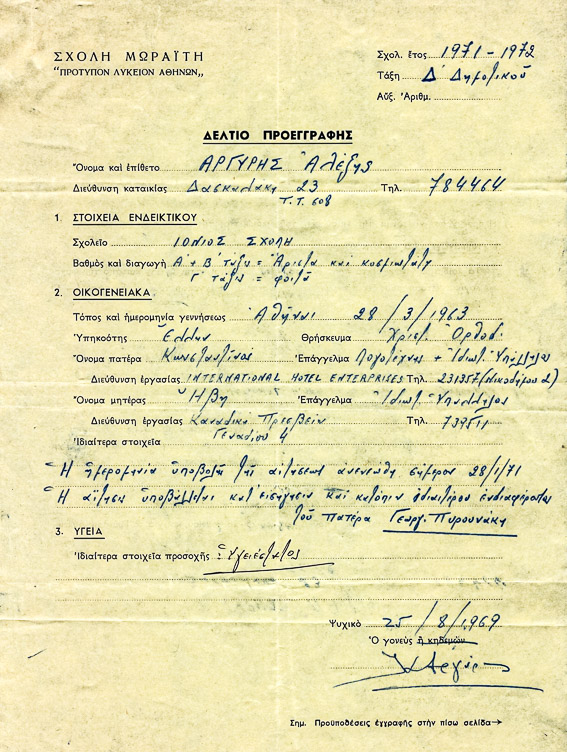 ΣΧΟΛΗ ΜΩΡΑΪΤΗ
"ΠΡΟΤΥΠΟΝ ΛΥΚΕΙΟΝ ΑΘΗΝΩΝ,,
Σχολ. ἔτος 1971-1972
Τάξη Δ' Δημοτικοῦ
Αὔξ. Ἀριθμ.
ΔΕΛΤΙΟ ΠΡΟΕΓΓΡΑΦΗΣ
Ὄνομα καὶ ἐπίθετο ΑΡΓΥΡΗΣ Ἀλέξης
Διεύθυνση κατοικίας Δασκαλάκη 23 Τηλ. 784464
Τ.Τ. 608
1. ΣΤΟΙΧΕΙΑ ΕΝΔΕΙΚΤΙΚΟΥ
Σχολεῖο ΙΟΝΙΟΣ ΣΧΟΛΗ
Βαθμὸς καὶ διαγωγή Α' + Β' τάξις = Ἄριστα καὶ κοσμιωτάτη
Γ' τάξις = φοιτᾶ
2. ΟΙΚΟΓΕΝΕΙΑΚΑ
Τόπος καὶ ἡμερομηνία γεννήσεως Ἀθῆναι 28/3/1963
Ὑπηκοότης Ἕλλην Θρήσκευμα Χριστ. Ὀρθόδ.
Ὄνομα πατέρα Κωνσταντῖνος Ἐπάγγελμα Λογοτέχνης + Ἰδιωτ. Ὑπάλληλος
Διεύθυνση ἐργασίας INTERNATIONAL HOTEL ENTERPRISES Τηλ. 231357 (Νικοδήμου 2)
Ὄνομα μητέρας Ἥβη Ἐπάγγελμα Ἰδιωτ. Ὑπάλληλος
Διεύθυνση ἐργασίας Καναδικὴ Πρεσβεία Τηλ. 739511
Γεναδίου 4
Ἰδιαίτερα στοιχεῖα
Ἡ ἡμερομηνία ὑποβολῆς τῆς αἰτήσεως ἀνενεώθη σήμερον 28/1/71
Ἡ αἴτησις ὑποβάλλεται κατ' εἰσήγησιν καὶ κατόπιν ἰδιαιτέρου ἐνδιαφέροντος
τοῦ Πατέρα Γεωργ. Πυρουνάκη
3. ΥΓΕΙΑ
Ἰδιαίτερα στοιχεῖα προσοχῆς Ὑγιέστατος
Ψυχικὸ 25/8/1969
Ὁ γονεὺς ἢ κηδεμών
Σημ. Προϋποθέσεις ἐγγραφῆς στὴν πίσω σελίδα→